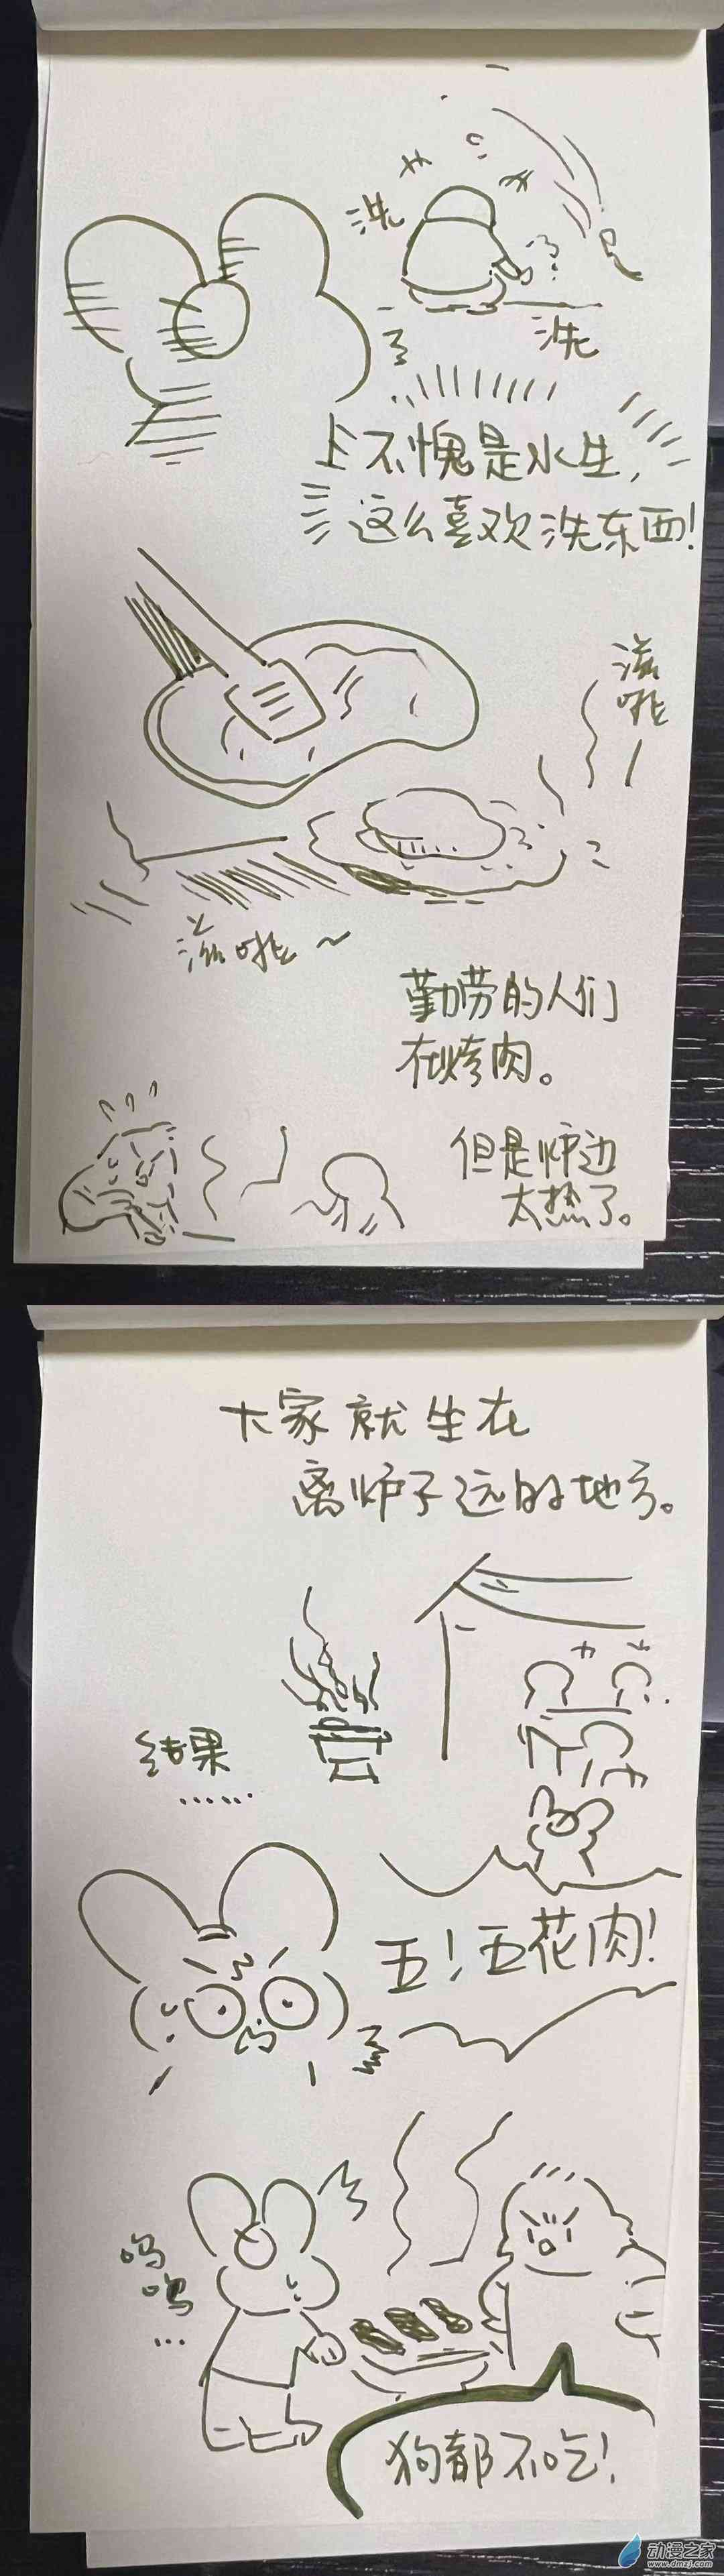 洗
洗
不愧是水生,
这么喜欢洗东西!
滋
啦
滋啦~
勤劳的人们
在烤肉。
但是炉边
太热了。
大家就坐在
离炉子远的地方。
结果
......
五!五花肉!
呜
呜
...
狗都不吃!
动漫之家
www.dmzj.com